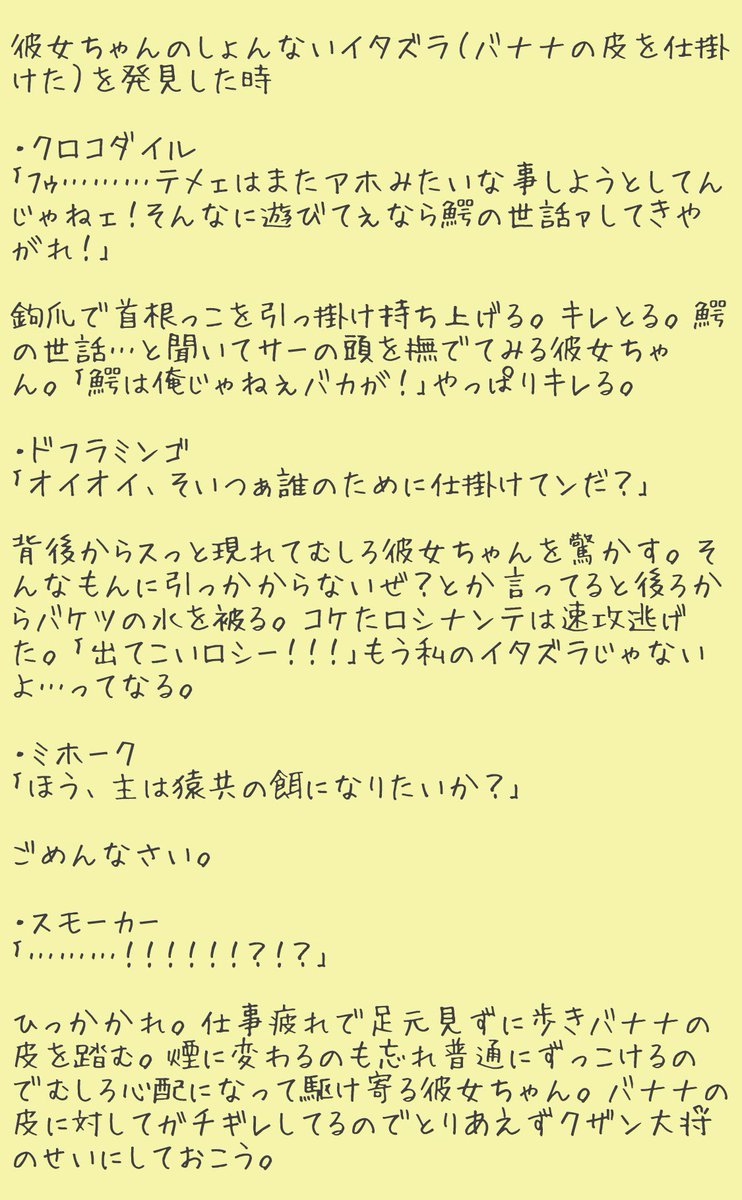 彼女ちゃんのしょんないイタズラ(バナナの皮を仕掛
けた)を発見した時
・クロコダイル
「ﾌｩ………テメェはまたアホみたいな事しようとしてん
じゃねェ!そんなに遊びてぇなら鰐の世話ｧしてきや
がれ!」
鉤爪で首根っこを引っ掛け持ち上げる。キレとる。鰐
の世話…と聞いてサーの頭を撫でてみる彼女ちゃ
ん。「鰐は俺じゃねぇバカが!」やっぱりキレる。
・ドフラミンゴ
「オイオイ、そいつぁ誰のために仕掛けてンだ?」
背後からスっと現れてむしろ彼女ちゃんを驚かす。そ
んなもんに引っかからないぜ?とか言ってると後ろか
らバケツの水を被る。コケたロシナンテは速攻逃げ
た。「出てこいロシー!!!」もう私のイタズラじゃない
よ…ってなる。
・ミホーク
「ほう、主は猿共の餌になりたいか?」
ごめんなさい。
・スモーカー
「………!!!!!!?!?」
ひっかかれ。仕事疲れで足元見ずに歩きバナナの
皮を踏む。煙に変わるのも忘れ普通にずっこけるの
でむしろ心配になって駆け寄る彼女ちゃん。バナナの
皮に対してガチギレしてるのでとりあえずクザン大将
のせいにしておこう。